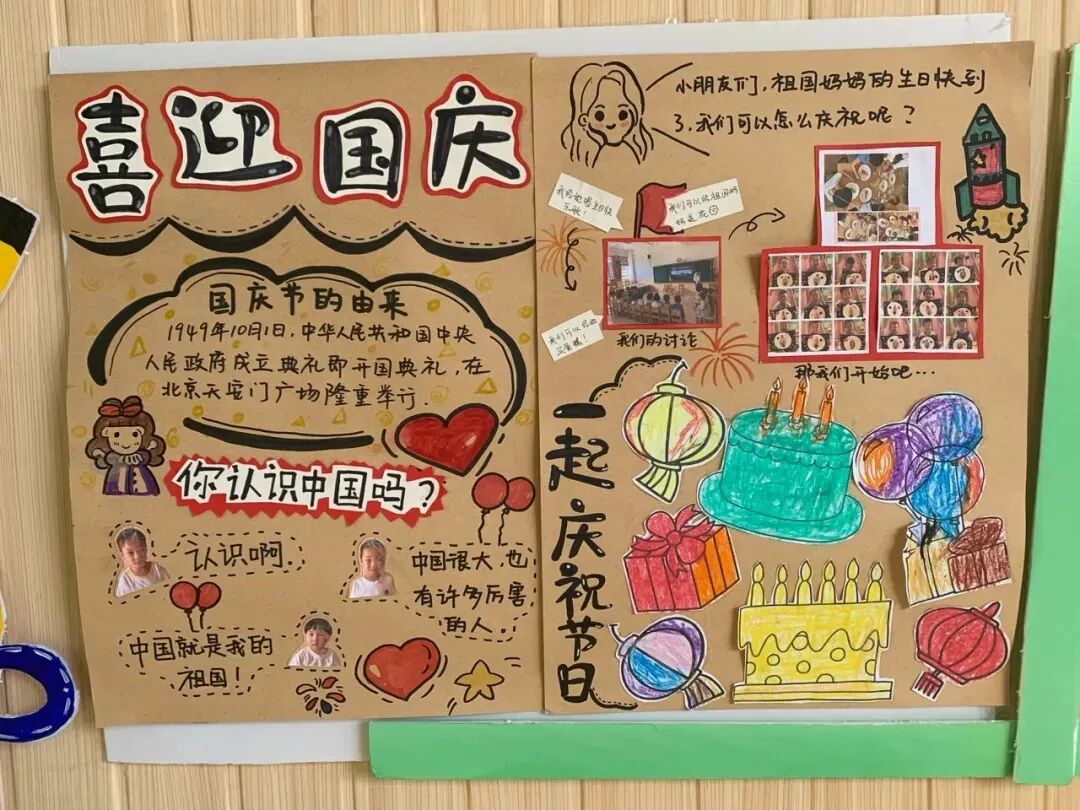 喜迎国庆
国庆节的由来
1949年10月1日，中华人民共和国中央
人民政府成立典礼即开国典礼，在
北京天安门广场隆重举行.
你认识中国吗？
认识啊.
中国很大，也
有许多厉害
的人.
中国就是我的
祖国！
小朋友们，祖国妈妈的生日快到
了，我们可以怎么庆祝呢？
我给她唱生日快
乐歌！
我们可以给祖国妈
妈送花
我们可以给她
买蛋糕！
我们的讨论
那我们开始吧…
一起庆祝节日